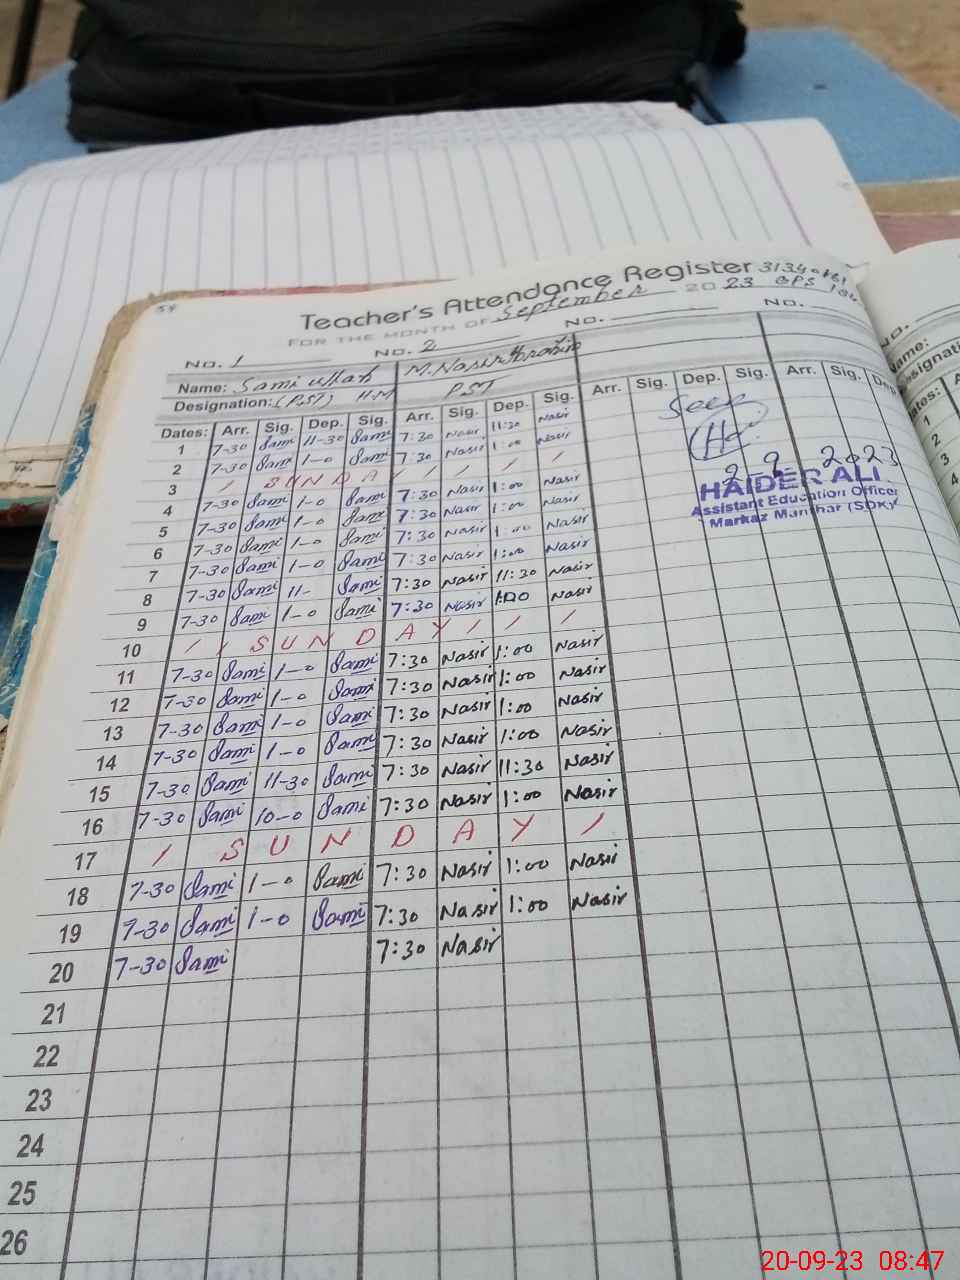 54
Teacher's Attendance Register
FOR THE MONTH OF September 2023 GPS
No. 1 No. 2 No. No.
Name: Sami ullah M. Nasir Ibrahim
Designation: (PST) HM PST
Dates: Arr. Sig. Dep. Sig. Arr. Sig. Dep. Sig. Arr. Sig. Dep. Sig. Arr. Sig. Dep
1 7-30 Sami 11-30 Sami 7:30 Nasir 11:30 Nasir
2 7-30 Sami 1-0 Sami 7:30 Nasir 1:00 Nasir
3 / SUNDAY / / / /
4 7-30 Sami 1-0 Sami 7:30 Nasir 1:00 Nasir
5 7-30 Sami 1-0 Sami 7:30 Nasir 1:00 Nasir
6 7-30 Sami 1-0 Sami 7:30 Nasir 1:00 Nasir
7 7-30 Sami 1-0 Sami 7:30 Nasir 1:00 Nasir
8 7-30 Sami 11- Sami 7:30 Nasir 11:30 Nasir
9 7-30 Sami 1-0 Sami 7:30 Nasir 1:00 Nasir
10 / / SUNDAY / / /
11 7-30 Sami 1-0 Sami 7:30 Nasir 1:00 Nasir
12 7-30 Sami 1-0 Sami 7:30 Nasir 1:00 Nasir
13 7-30 Sami 1-0 Sami 7:30 Nasir 1:00 Nasir
14 7-30 Sami 1-0 Sami 7:30 Nasir 1:00 Nasir
15 7-30 Sami 11-30 Sami 7:30 Nasir 11:30 Nasir
16 7-30 Sami 10-0 Sami 7:30 Nasir 1:00 Nasir
17 / SUNDAY /
18 7-30 Sami 1-0 Sami 7:30 Nasir 1:00 Nasir
19 7-30 Sami 1-0 Sami 7:30 Nasir 1:00 Nasir
20 7-30 Sami 7:30 Nasir
21
22
23
24
25
26
Seen
2 9 2023
HAIDER ALI
Assistant Education Officer
Markaz Manthar (SDK)
No.
Name:
Designati
Dates:
1
2
3
4
20-09-23 08:47